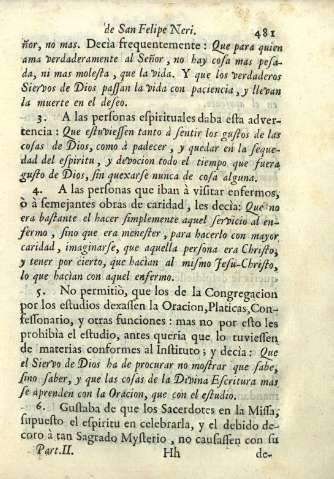 de San Felipe Neri. 481
ñor, no mas. Decia frequentemente: Que para quien
ama verdaderamente al Señor, no hay cosa mas pesa-
da, ni mas molesta, que la vida. Y que los verdaderos
Siervos de Dios passan la vida con paciencia, y llevan
la muerte en el deseo.
3. A las personas espirituales daba esta adver-
tencia: Que estuviessen tanto à sentir los gustos de las
cosas de Dios, como à padecer, y quedar en la seque-
dad del espiritu, y devocion todo el tiempo que fuera
gusto de Dios, sin quexarse nunca de cosa alguna.
4. A las personas que iban à visitar enfermos,
ò à semejantes obras de caridad, les decia: Que no
era bastante el hacer simplemente aquel servicio al en-
fermo, sino que era menester, para hacerlo con mayor
caridad, imaginarse, que aquella persona era Christo;
y tener por cierto, que hacian al mismo Jesu-Christo,
lo que hacian con aquel enfermo.
5. No permitiò, que los de la Congregacion
por los estudios dexassen la Oracion, Platicas, Con-
fessonario, y otras funciones: mas no por esto les
prohibia el estudio, antes queria que lo tuviessen
de materias conformes al Instituto; y decia: Que
el Siervo de Dios ha de procurar no mostrar que sabe,
sino saber, y que las cosas de la Divina Escritura mas
se aprenden con la Oracion, que con el estudio.
6. Gustaba de que los Sacerdotes en la Missa,
supuesto el espiritu en celebrarla, y el debido de-
coro à tan Sagrado Mysterio, no causassen con su
Part.II. Hh de-